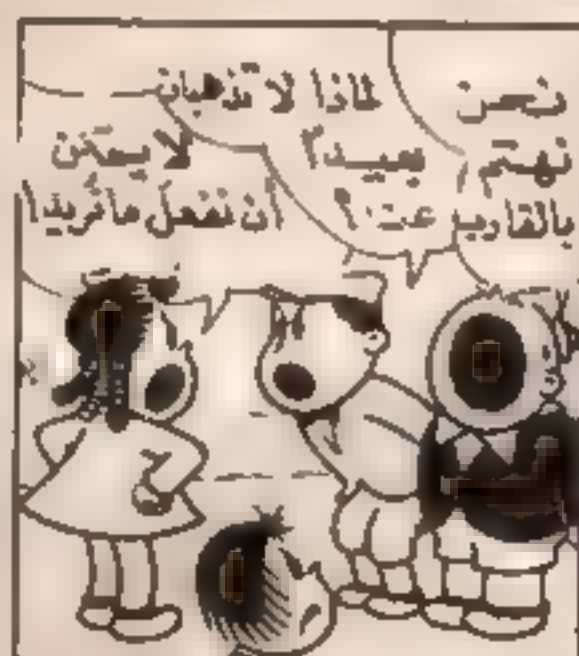 نحن
نهتم
بالقارب
لماذا لا تذهبان
بعيداً
لا يمكن
ان نفعل ما نريد!